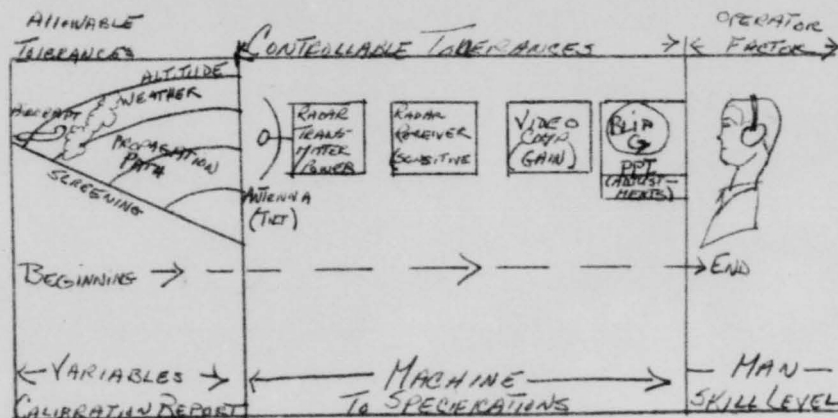 ALLOWABLE
TOLERANCES
CONTROLLABLE TOLERANCES
OPERATOR
FACTOR
ALTITUDE
WEATHER
AIRCRAFT
PROPAGATION
PATH
SCREENING
ANTENNA
(TILT)
RADAR
TRANS-
MITTER
POWER
RADAR
RECEIVER
(SENSITIVE)
VIDEO
COMP
(GAIN)
BLIP
PPI
(ADJUST-
MENTS)
BEGINNING
END
VARIABLES
CALIBRATION REPORT
MACHINE
TO SPECIFICATIONS
MAN
SKILL LEVEL